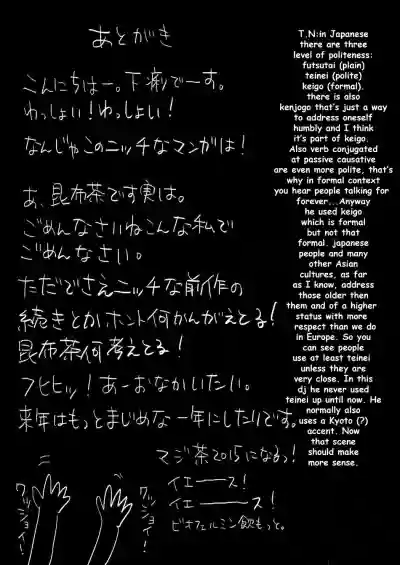 あとがき
こんにちはー。下痢でーす。
わっしょい！わっしょい！
なんじゃこのニッチなマンガは！
あ、昆布茶です実は。
ごめんなさいねこんな私で
ごめんなさい。
ただでさえニッチな前作の
続きとかホント何かんがえてる！
昆布茶何考えてる！
フヒヒッ！あーおなかいたい。
来年はもっとまじめな一年にしたいです。
マジ茶2015になるっ！
イエーース！
イエーース！
ビオフェルミン飲もっと。
ワッショイ！
ワッショイ！
T.N:in Japanese
there are three
level of politeness:
futsutai (plain)
teinei (polite)
keigo (formal).
there is also
kenjogo that's just a way
to address oneself
humbly and I think
it's part of keigo.
Also verb conjugated
at passive causative
are even more polite, that's
why in formal context
you hear people talking for
forever...Anyway
he used keigo
which is formal
but not that
formal. japanese
people and many
other Asian
cultures, as far
as I know, address
those older then
them and of a higher
status with more
respect than we do
in Europe. So you
can see people
use at least teinei
unless they are
very close. In this
dj he never used
teinei up until now. He
normally also
uses a Kyoto (?)
accent. Now
that scene
should make
more sense.